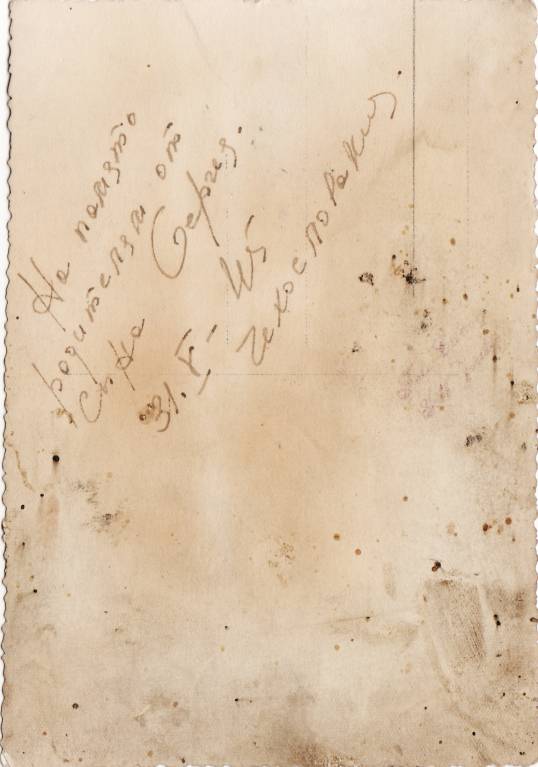 На память
родителям от
сына Сергея.
31.V- 45
Чехословакия